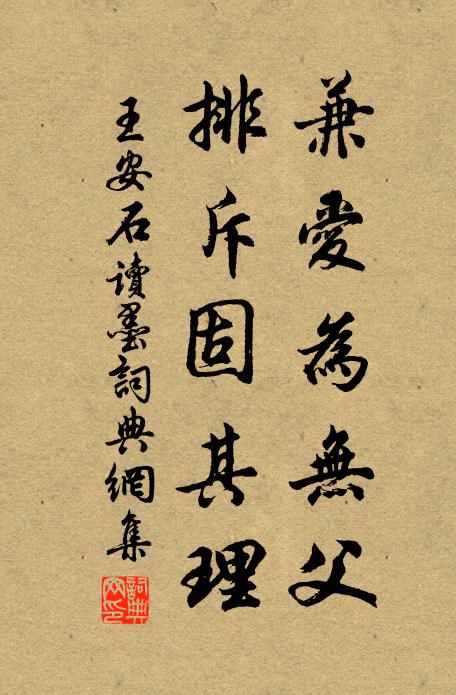 兼愛為無父
排斥固其理
王安石讀墨詞典網集
詞典
网印